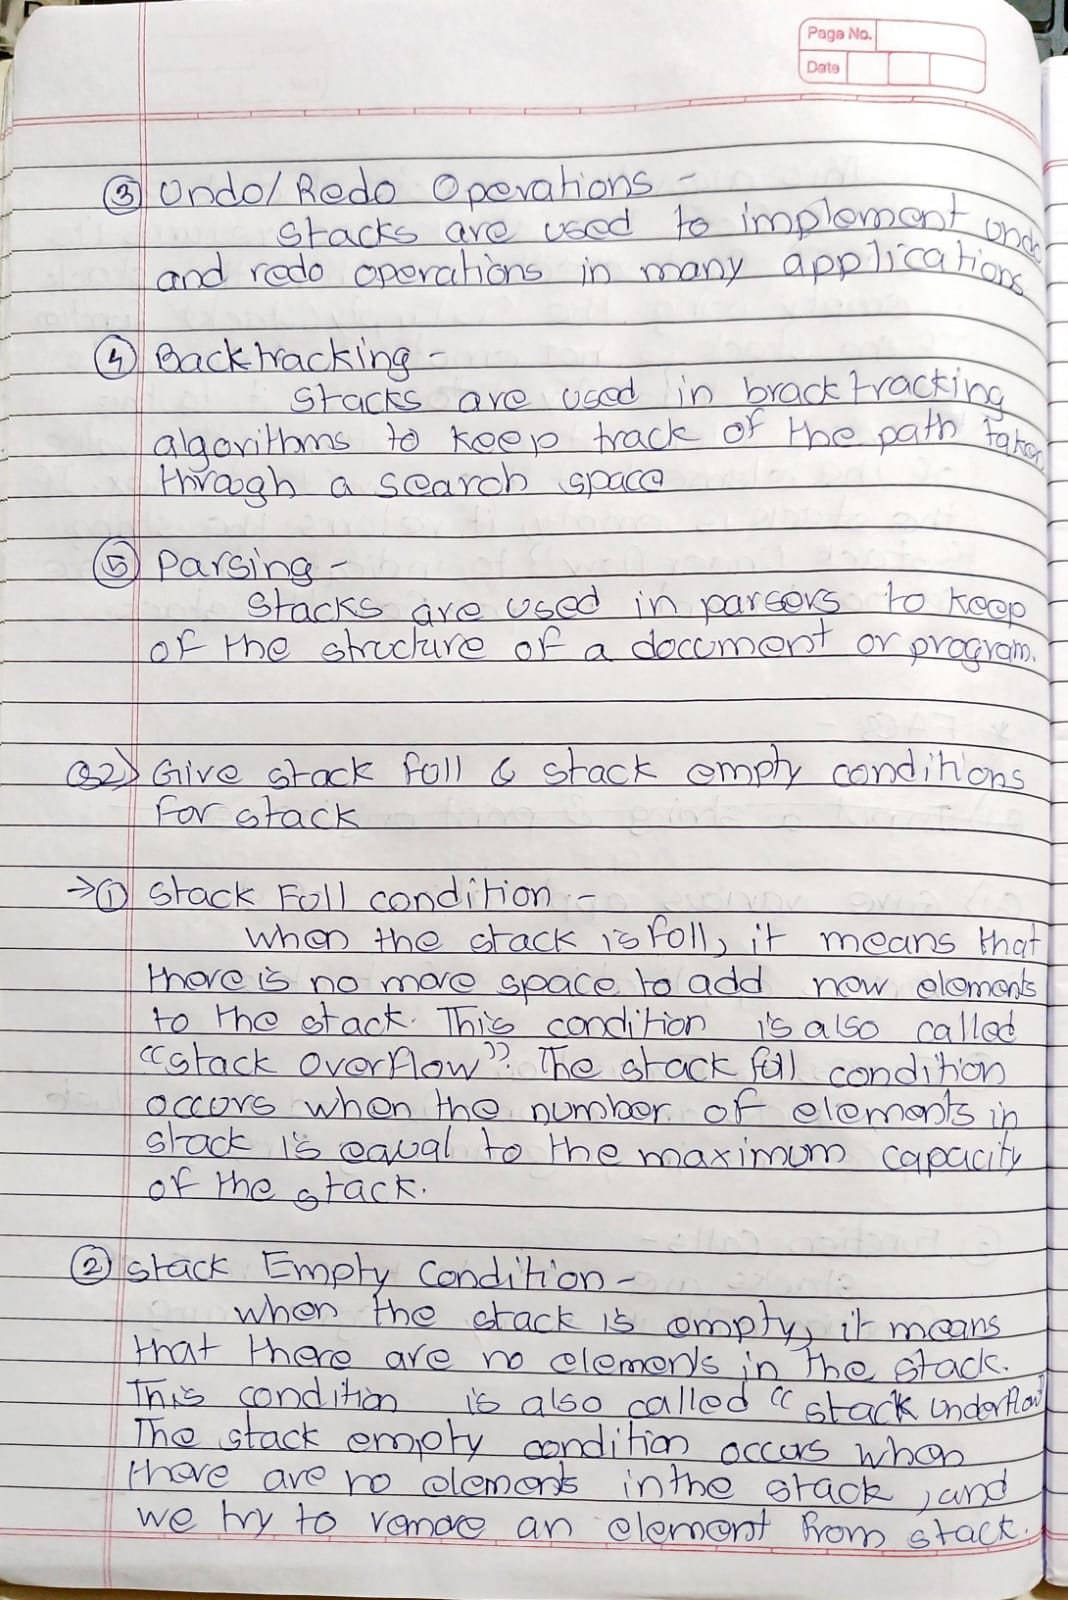 Page No.
Date
③ Undo/Redo Operations -
Stacks are used to implement undo
and redo operations in many applications
④ Backtracking -
Stacks are used in bracktracking
algorithms to keep track of the path taken
through a search space
⑤ Parsing -
Stacks are used in parsers to keep
of the structure of a document or program.
Q2) Give stack full & stack empty conditions
for stack
→① Stack Full condition -
When the stack is full, it means that
there is no more space to add new elements
to the stack. This condition is also called
"stack overflow". The stack full condition
occurs when the number of elements in
stack is equal to the maximum capacity
of the stack.
② Stack Empty Condition -
When the stack is empty, it means
that there are no elements in the stack.
This condition is also called "stack underflow"
The stack empty condition occurs when
there are no elements in the stack, and
we try to remove an element from stack.